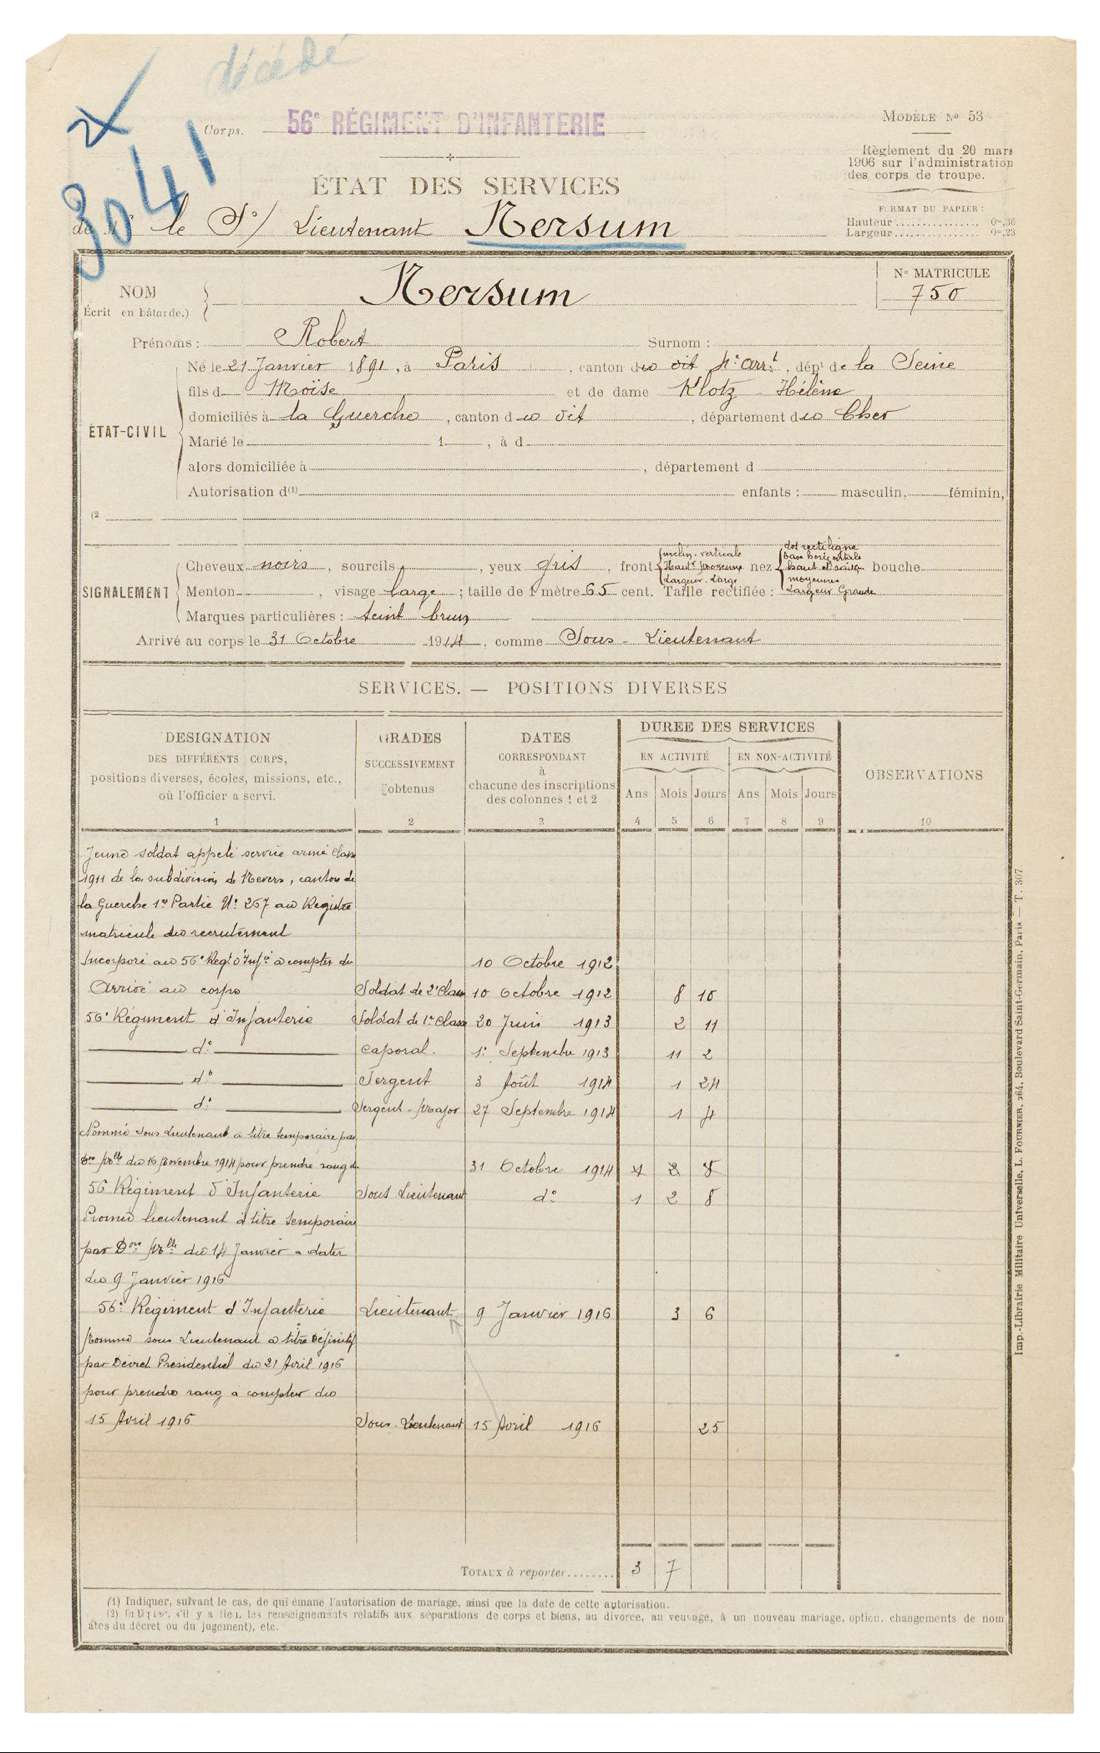 décédé
3041
Corps. 56e RÉGIMENT D'INFANTERIE
MODÈLE No 53
Règlement du 20 mars
1906 sur l'administration
des corps de troupe.
ÉTAT DES SERVICES
FORMAT DU PAPIER:
Hauteur .............. 0m,36
Largeur ............... 0m,23
de M le S/ Lieutenant Nersum
NOM
Écrit en bâtarde.)
Nersum
No MATRICULE
750
Prénoms: Robert Surnom:
ÉTAT-CIVIL
Né le 21 Janvier 1891, à Paris, canton du dit arrt, dépt de la Seine
fils d Moïse et de dame Klotz Hélène
domiciliés à la Guerche, canton du dit, département du Cher
Marié le 1 , à d
alors domiciliée à , département d
Autorisation d(1) enfants: masculin, féminin,
(2
SIGNALEMENT
Cheveux noirs, sourcils, yeux gris, front { inclin. verticale Hautr moyenne Largeur Large nez { dos rectiligne base horizontale haut et saillie moyennes Largeur Grande bouche
Menton , visage large; taille de 1 mètre 65 cent. Taille rectifiée:
Marques particulières: teint brun
Arrivé au corps le 31 Octobre 1914, comme Sous-Lieutenant
SERVICES. — POSITIONS DIVERSES
DESIGNATION
DES DIFFÉRENTS CORPS,
positions diverses, écoles, missions, etc.,
où l'officier a servi.
1
GRADES
SUCCESSIVEMENT
obtenus
2
DATES
CORRESPONDANT
à
chacune des inscriptions
des colonnes 1 et 2
3
DUREE DES SERVICES
EN ACTIVITÉ EN NON-ACTIVITÉ
Ans Mois Jours Ans Mois Jours
4 5 6 7 8 9
OBSERVATIONS
10
Jeune soldat appelé service armé Classe
1911 de la subdivision de Nevers, canton de
la Guerche 1re Partie No 267 au Registre
matricule du recrutement
Incorporé au 56e Regt d'Infie à compter du 10 Octobre 1912
Arrivé au corps Soldat de 2e Classe 10 Octobre 1912 8 10
56e Régiment d'Infanterie Soldat de 1re Classe 20 Juin 1913 2 11
do Caporal. 1er Septembre 1913 11 2
do Sergent 3 Août 1914 1 24
do Sergent-Major 27 Septembre 1914 1 4
Nommé sous Lieutenant à titre temporaire par
Don Mlle du 16 Novembre 1914 pour prendre rang du 31 Octobre 1914 1 2 8
56 Régiment d'Infanterie Sous Lieutenant do 1 2 8
Promu lieutenant à titre temporaire
par Don Mlle du 14 Janvier à dater
du 9 Janvier 1916
56e Régiment d'Infanterie Lieutenant 9 Janvier 1916 3 6
Nommé sous Lieutenant à titre Définitif
par Décret Présidentiel du 21 Avril 1916
pour prendre rang à compter du
15 Avril 1916 Sous-Lieutenant 15 Avril 1916 25
TOTAUX à reporter........ 3 7
(1) Indiquer, suivant le cas, de qui émane l'autorisation de mariage, ainsi que la date de cette autorisation.
(2) Indiquer, s'il y a lieu, les renseignements relatifs aux séparations de corps et biens, au divorce, au veuvage, à un nouveau mariage, option, changements de nom
ates du décret ou du jugement), etc.
Imp.-Librairie Militaire Universelle, L. FOURNIER, 264, Boulevard Saint-Germain, Paris — T. 307